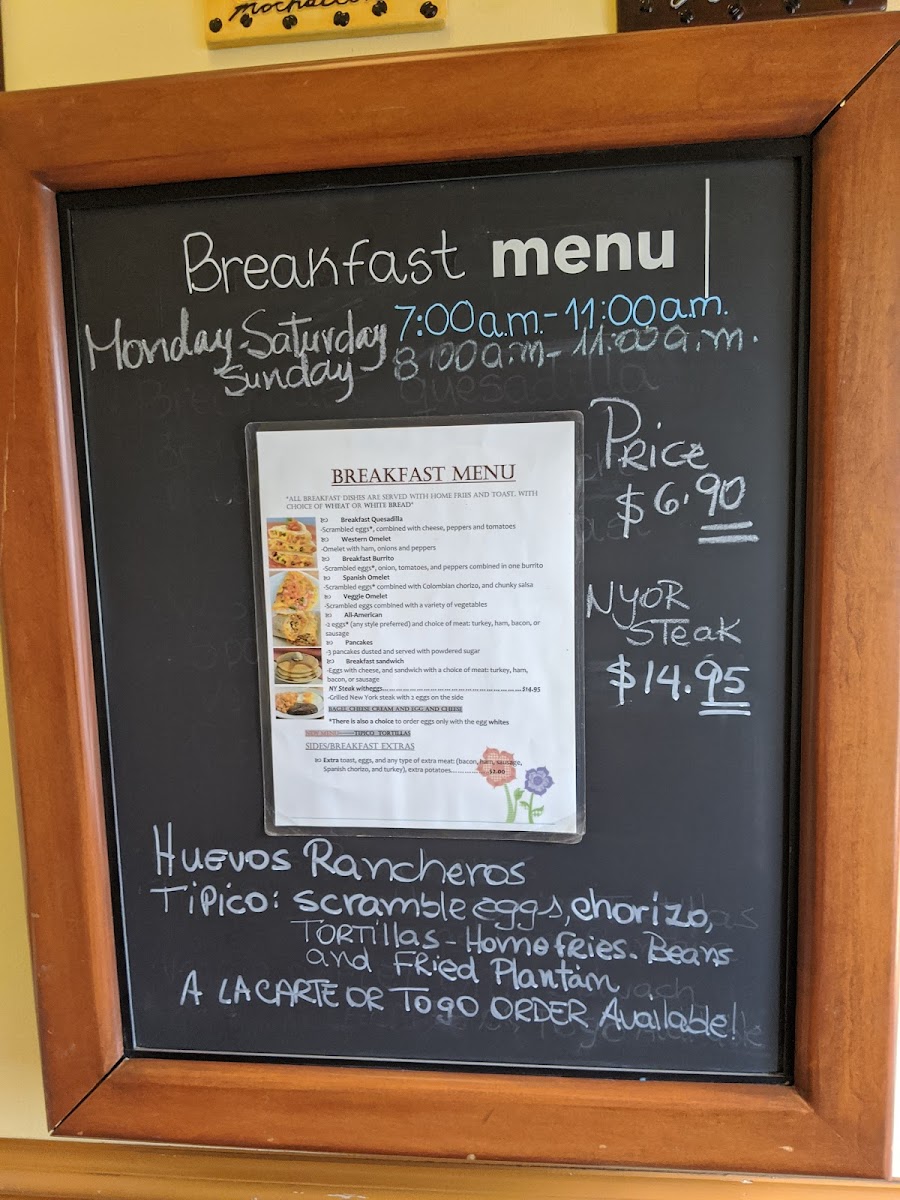 Breakfast menu
Monday-Saturday 7:00a.m.-11:00a.m.
Sunday 8:00a.m-11:00a.m.
Price
$6.90
NYOR
STeak
$14.95
BREAKFAST MENU
*ALL BREAKFAST DISHES ARE SERVED WITH HOME FRIES AND TOAST. WITH
CHOICE OF WHEAT OR WHITE BREAD*
Breakfast Quesadilla
-Scrambled eggs*, combined with cheese, peppers and tomatoes
Western Omelet
-Omelet with ham, onions and peppers
Breakfast Burrito
-Scrambled eggs*, onion, tomatoes, and peppers combined in one burrito
Spanish Omelet
-Scrambled eggs* combined with Colombian chorizo, and chunky salsa
Veggie Omelet
-Scrambled eggs combined with a variety of vegetables
All-American
-2 eggs* (any style preferred) and choice of meat: turkey, ham, bacon, or
sausage
Pancakes
-3 pancakes dusted and served with powdered sugar
Breakfast sandwich
-Eggs with cheese, and sandwich with a choice of meat: turkey, ham,
bacon, or sausage
NY Steak witheggs.......................................................$14.95
-Grilled New York steak with 2 eggs on the side
BAGEL CHEESE CREAM AND EGG AND CHEESE
*There is also a choice to order eggs only with the egg whites
NEW MENU-------TIPICO TORTILLAS
SIDES/BREAKFAST EXTRAS
Extra toast, eggs, and any type of extra meat: (bacon, ham, sausage,
Spanish chorizo, and turkey), extra potatoes...............$2.00
HUEVOS RANCHEROS
TIPICO: Scramble eggs, chorizo,
TORTILLAS - Home fries. Beans
and Fried Plantain
A LA CARTE OR TO go ORDER Available!